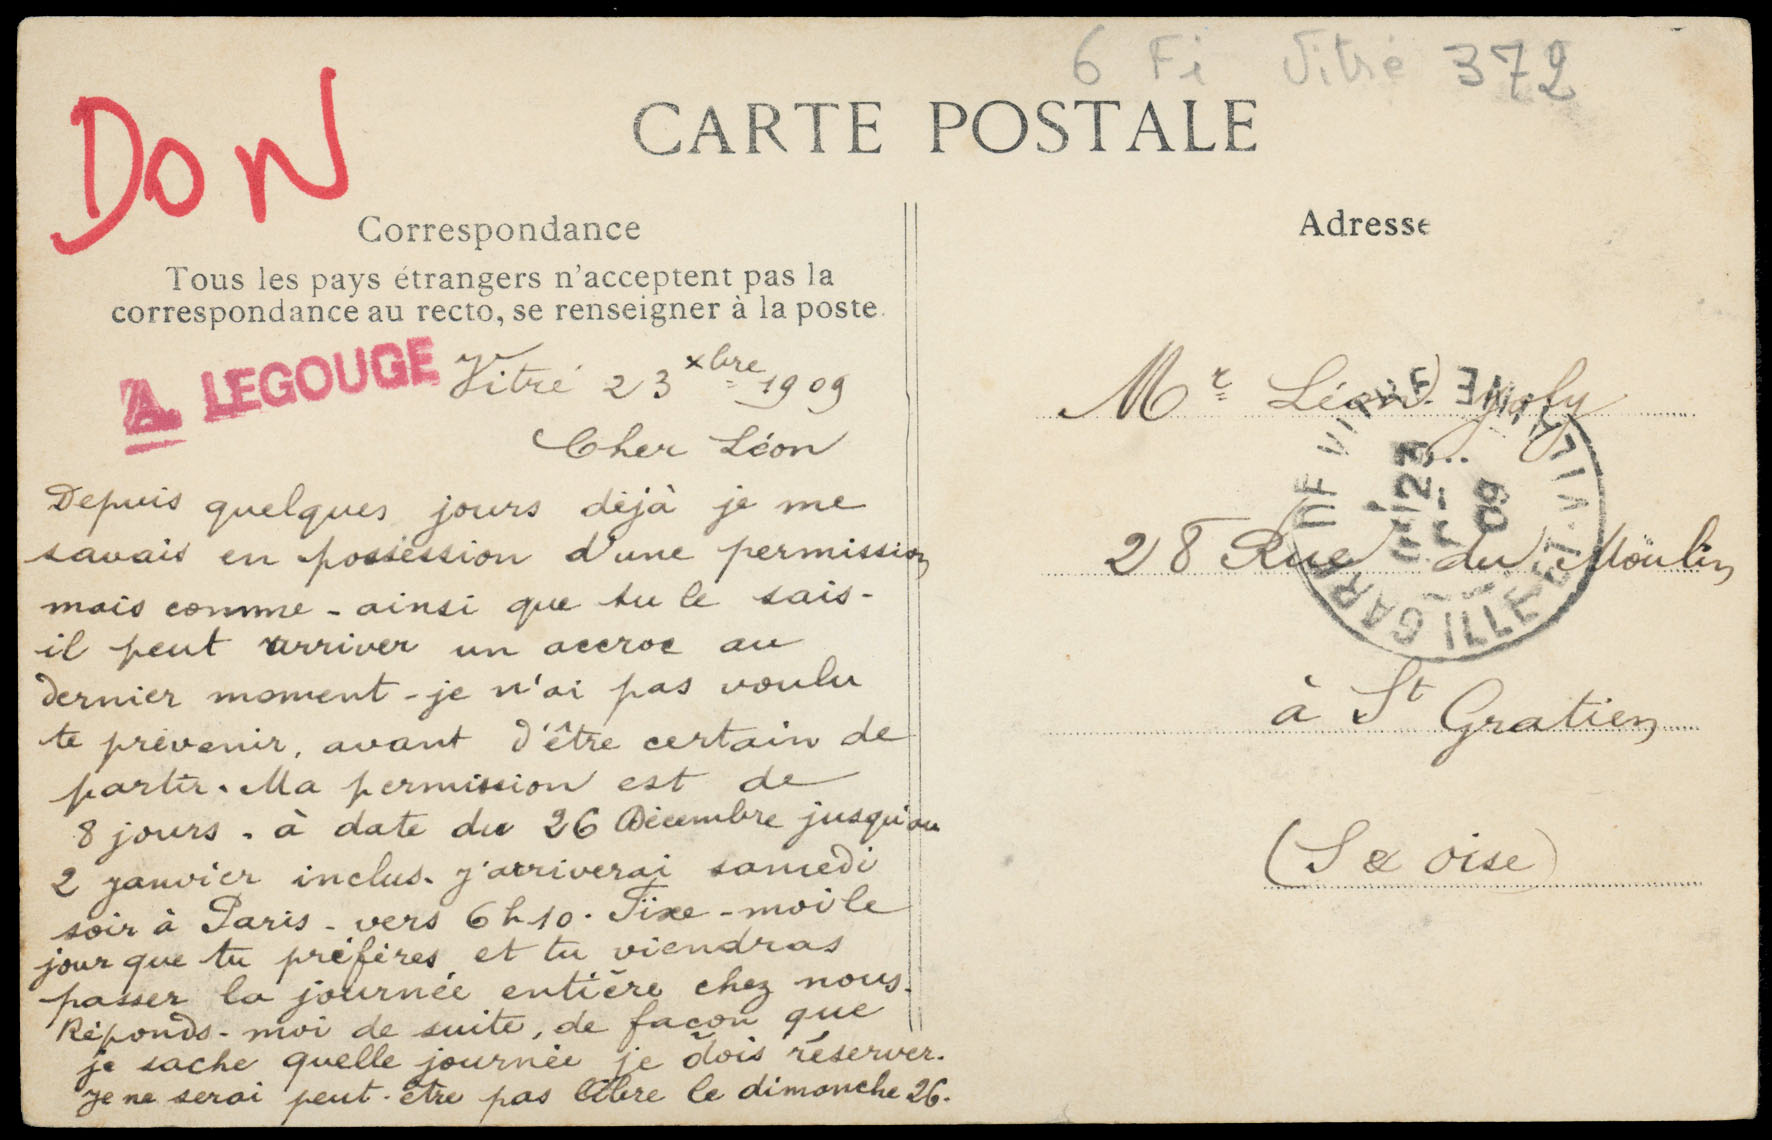 6 Fi Vitré 372
DON
CARTE POSTALE
Correspondance
Tous les pays étrangers n'acceptent pas la
correspondance au recto, se renseigner à la poste.
A. LEGOUGE
Vitré 23 xbre 1909
Cher Léon
Depuis quelques jours déjà je me
savais en possession d'une permission
mais comme - ainsi que tu le sais -
il peut arriver un accroc au
dernier moment - je n'ai pas voulu
te prévenir, avant d'être certain de
partir. Ma permission est de
8 jours - à date du 26 Décembre jusqu'au
2 janvier inclus. J'arriverai samedi
soir à Paris - vers 6h10. Fixe-moi le
jour que tu préfères et tu viendras
passer la journée entière chez nous.
Réponds-moi de suite, de façon que
je sache quelle journée je dois réserver.
Je ne serai peut-être pas libre le dimanche 26.
Adresse
Mr Léon Joly
28 Rue du Moulin
à St Gratien
(S & Oise)
GARE DE VITRE
ILLE-ET-VILAINE
23
09